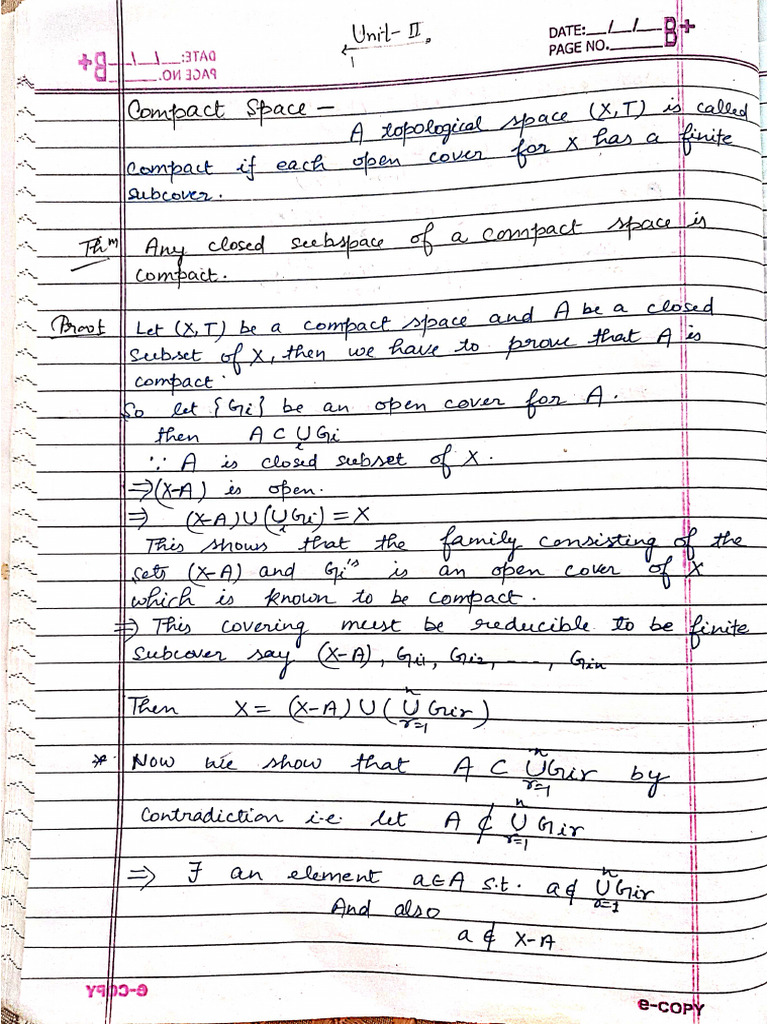 Unit- II
DATE:__/__/__
PAGE NO.
B+
Compact Space -
A topological space (X,T) is called
compact if each open cover for X has a finite
subcover.
Thm Any closed subspace of a compact space is
compact.
Proof Let (X,T) be a compact space and A be a closed
subset of X, then we have to prove that A is
compact.
So let {Gi} be an open cover for A.
then A ⊂ ∪i Gi
∵ A is closed subset of X.
⇒ (X-A) is open.
⇒ (X-A)∪(∪i Gi) = X
This shows that the family consisting of the
sets (X-A) and Gi's is an open cover of X
which is known to be compact.
⇒ This covering must be reducible to be finite
subcover say (X-A), Gi1, Gi2, ----, Gin
Then X = (X-A)∪(∪_{r=1}^{n} Gir)
* Now we show that A ⊂ ∪_{r=1}^{n} Gir by
Contradiction i.e. let A ⊄ ∪_{r=1}^{n} Gir
⇒ ∃ an element a∈A s.t. a∉ ∪_{a=1}^{n} Gir
And also
a ∉ X-A
e-COPY
e-COPY